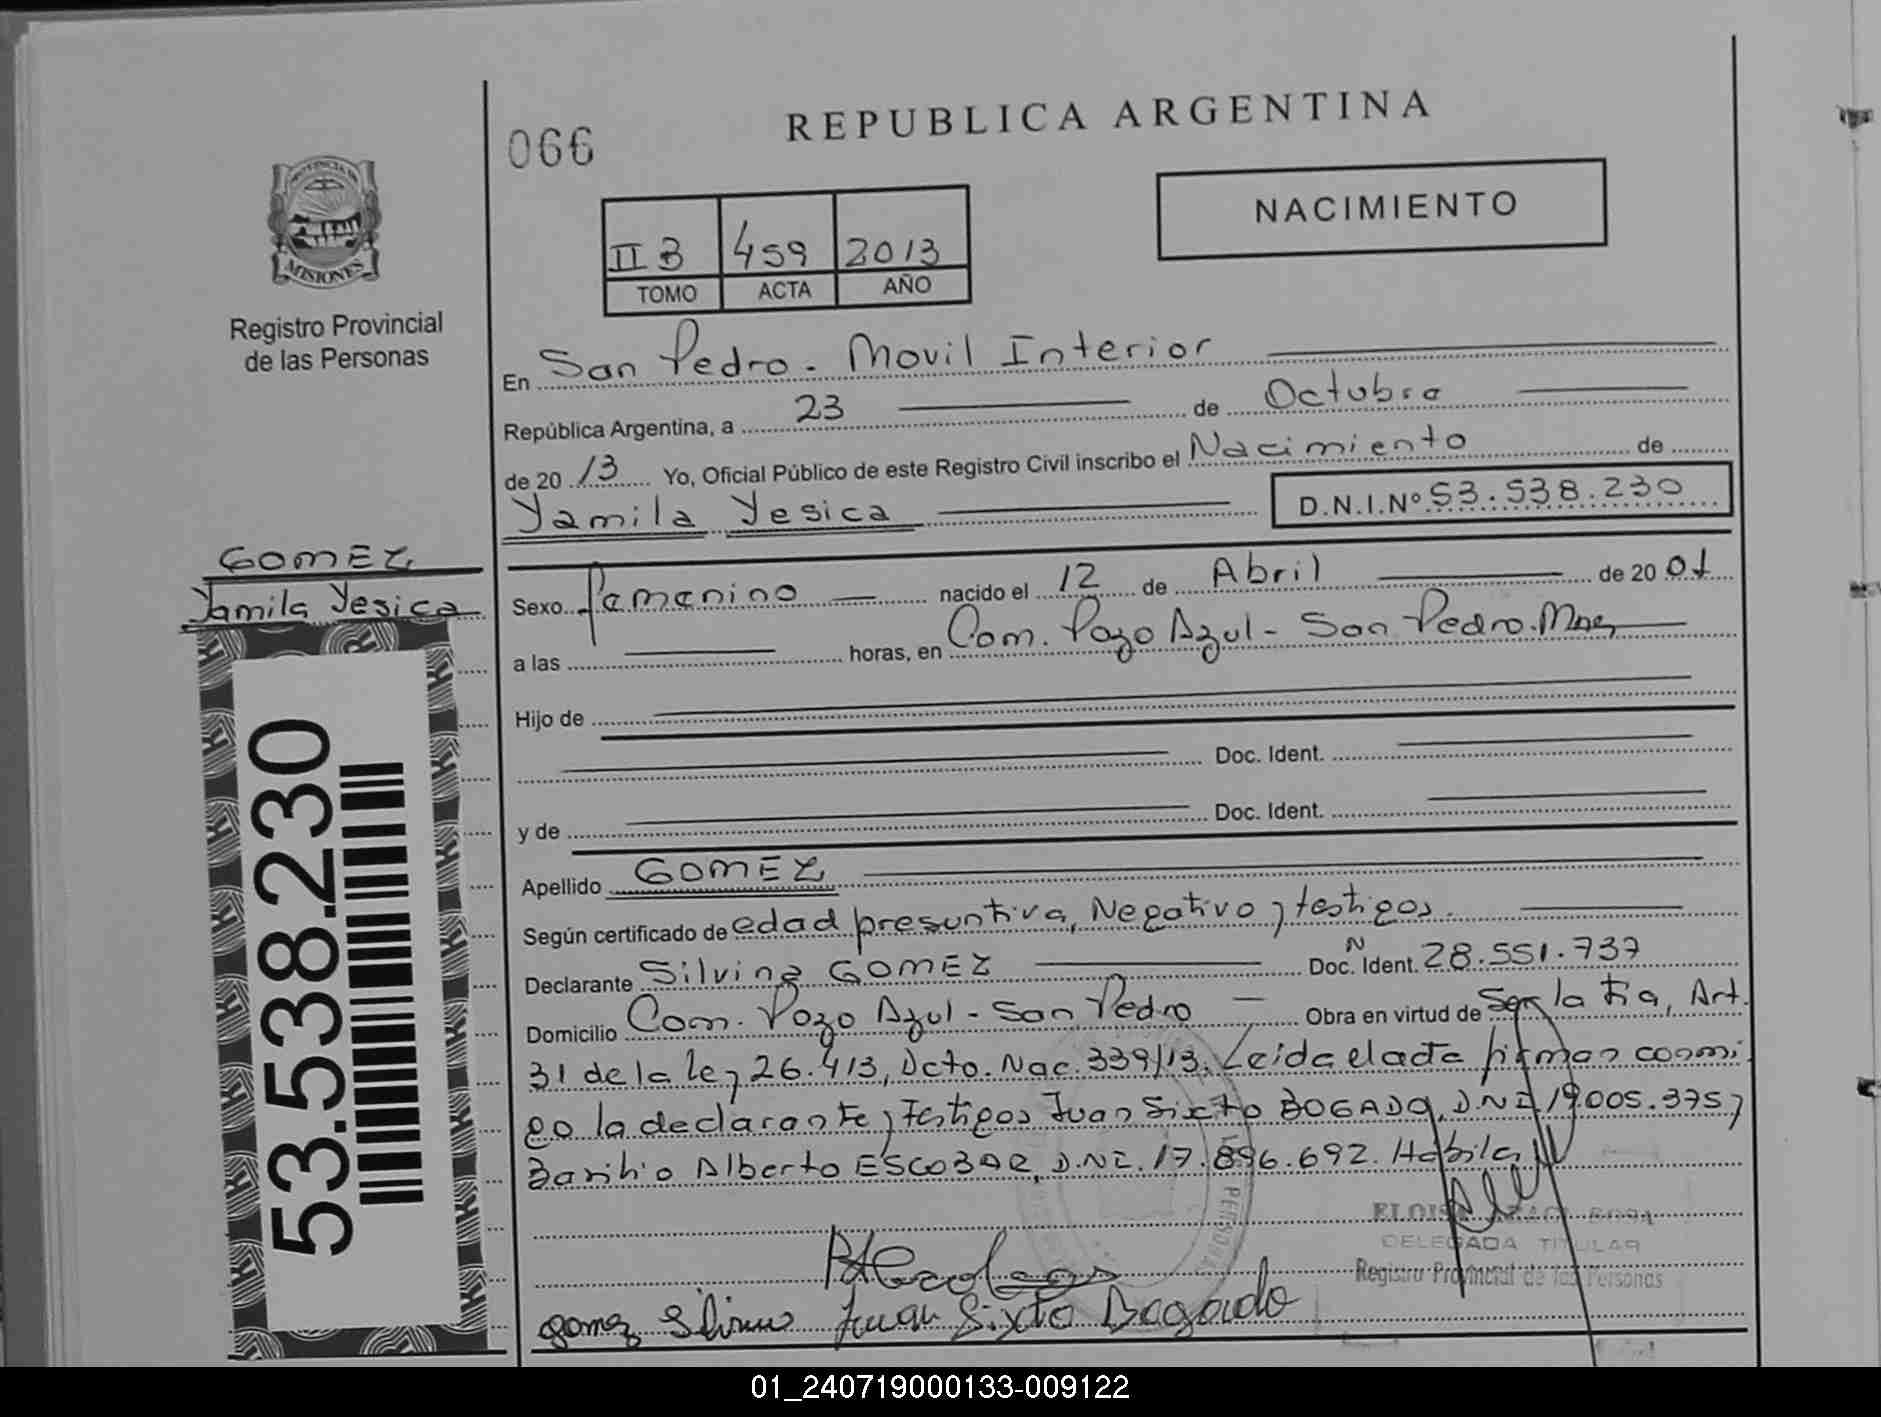 066
REPUBLICA ARGENTINA
PROVINCIA DE
MISIONES
Registro Provincial
de las Personas
II B 459 2013
TOMO ACTA AÑO
NACIMIENTO
En San Pedro - Movil Interior
República Argentina, a 23 de Octubre
de 20 13 Yo, Oficial Público de este Registro Civil inscribo el Nacimiento de
Yamila Yesica D.N.I.Nº 53.538.230
GOMEZ
Yamila Yesica
53.538.230
Sexo Femenino nacido el 12 de Abril de 20 01
a las horas, en Com. Pozo Azul - San Pedro. Mnes
Hijo de
Doc. Ident.
y de Doc. Ident.
Apellido GOMEZ
Según certificado de edad presuntiva, Negativo y testigos.
Declarante Silvina GOMEZ Doc. Ident. N 28.551.737
Domicilio Com. Pozo Azul - San Pedro Obra en virtud de Ser la tia, Art.
31 de la ley 26.413, Dcto. Nac. 339/13. Leida el acta firman conmi
go la declarante y testigos Juan Sixto BOGADO, D.N.I. 19.005.375 y
Basilio Alberto ESCOBAR, D.N.I. 17.896.692. Habiles
ELOISA ARACI ROSA
DELEGADA TITULAR
Registro Provincial de las Personas
gomez Silvina Juan Sixto Bogado
01_240719000133-009122